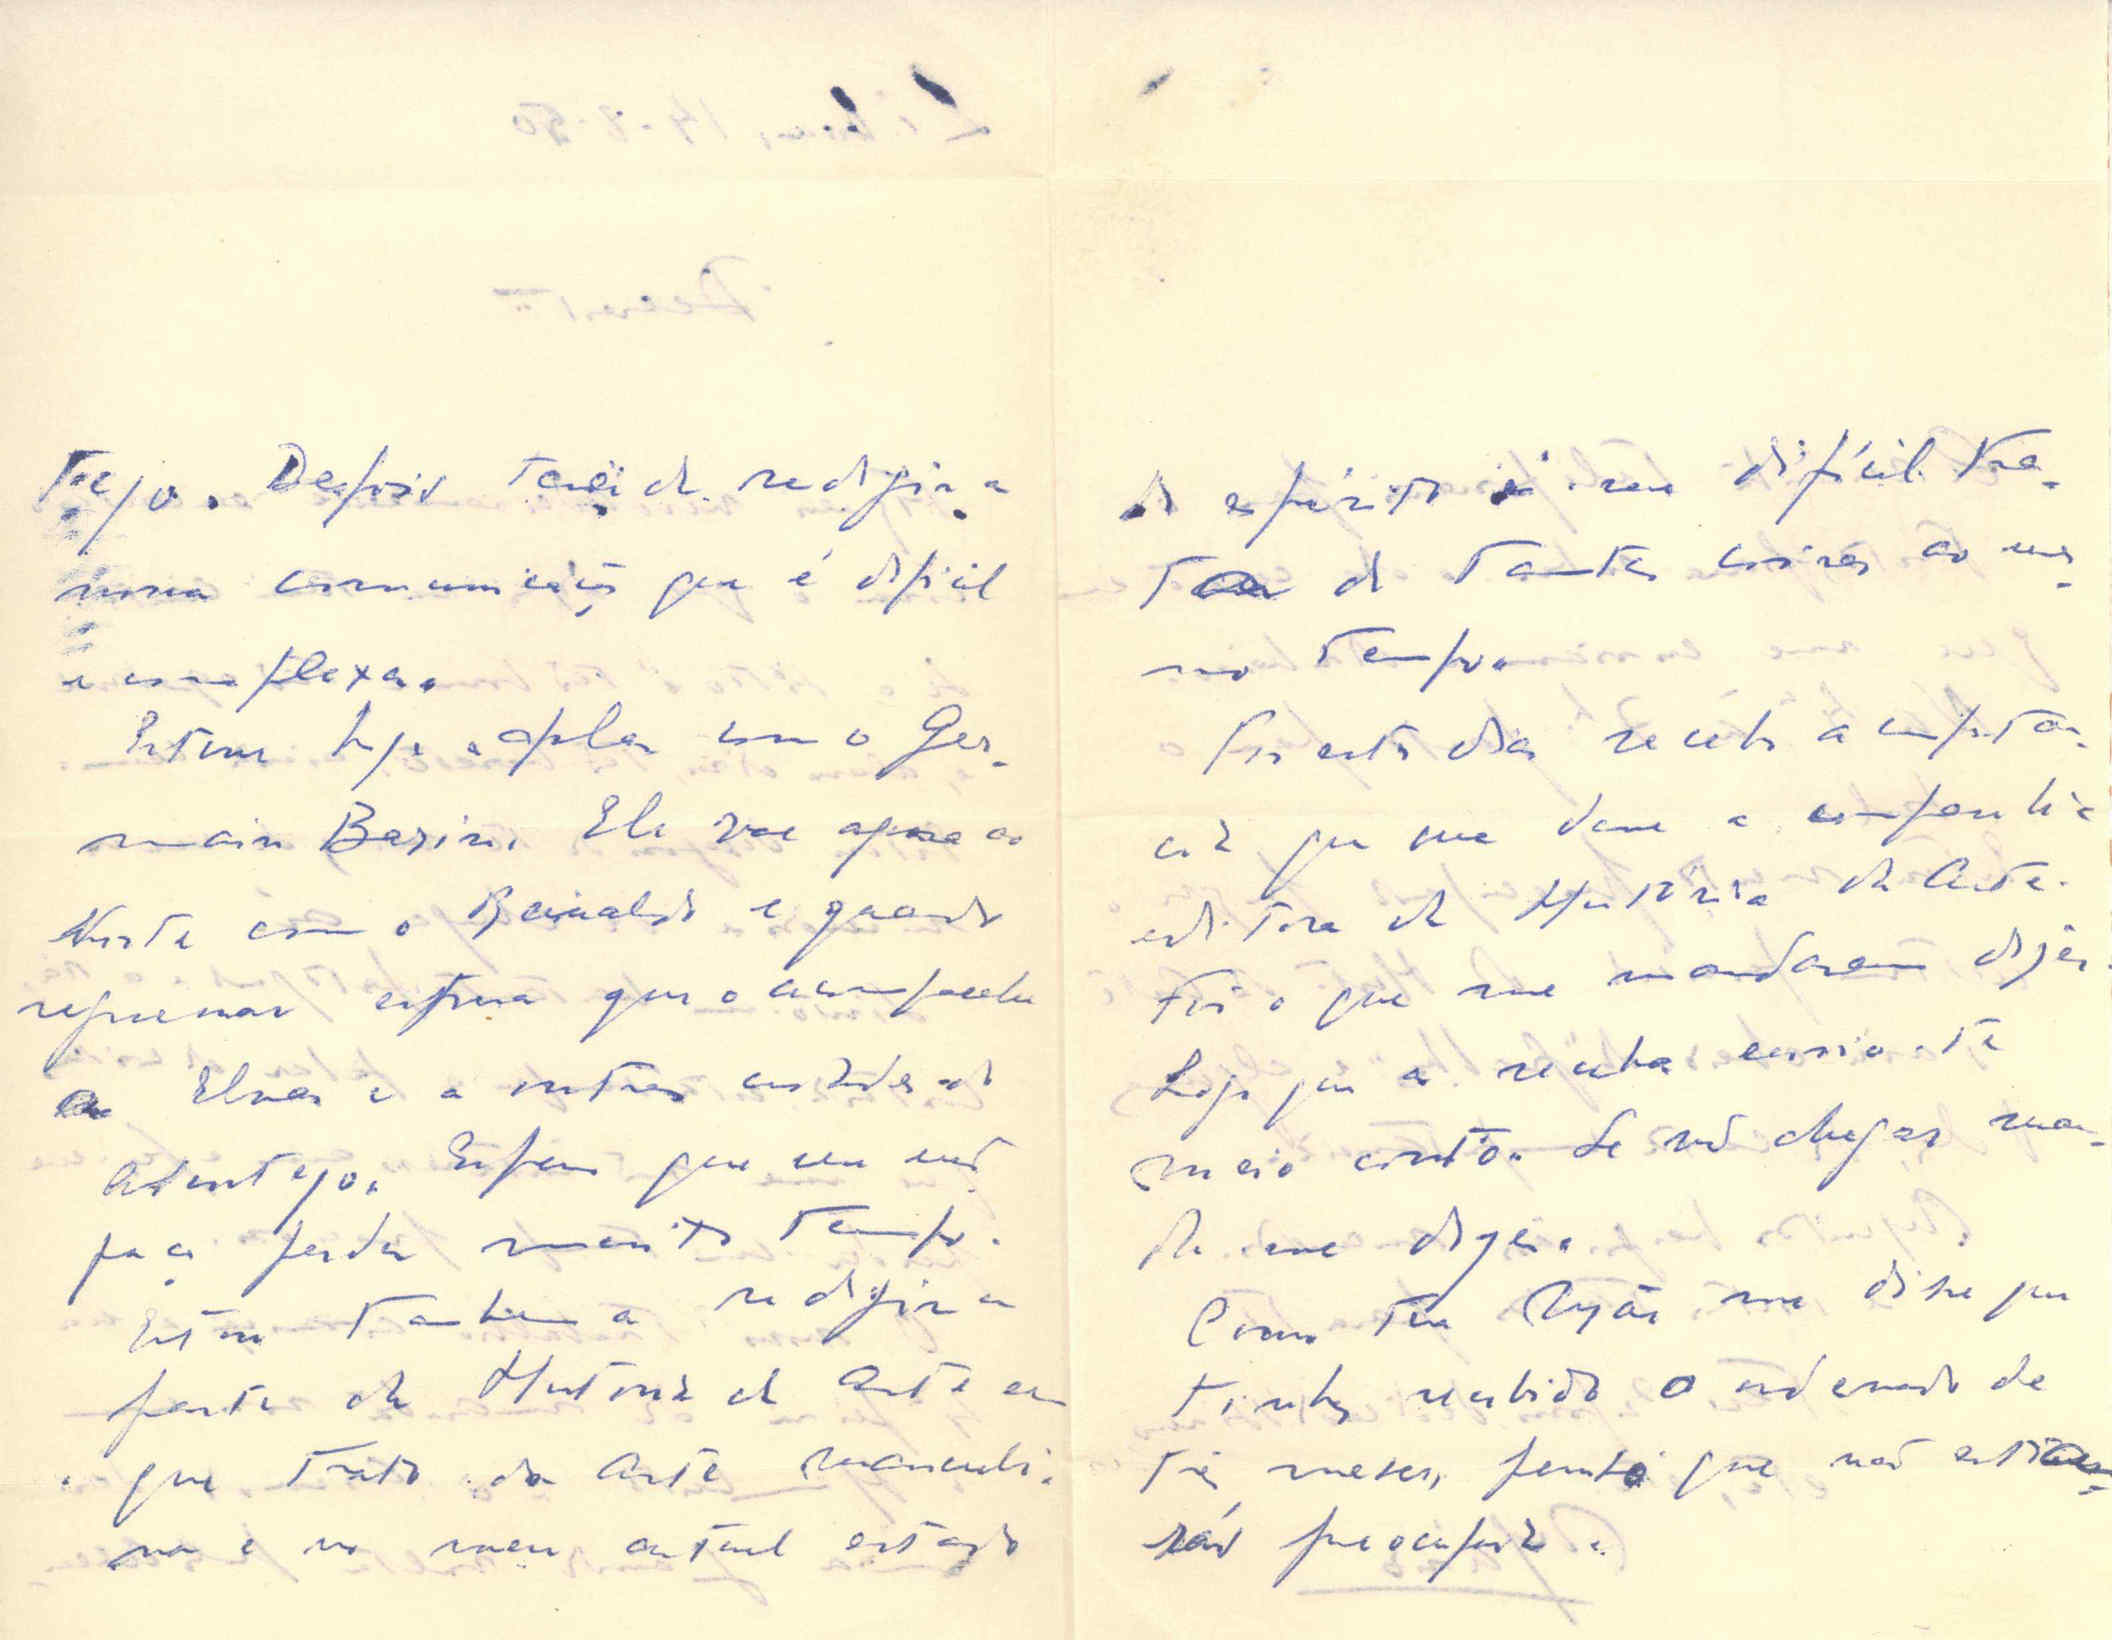 Tejo. Depois terei de redigir a
nova comunicação que é difícil
e complexa.
Estive hoje a falar com o Ger-
main Bazin. Ele vae agora ao
Norte com o Reinaldo e quando
regressar espera que o acompanhe
a Elvas e a outras cidades do
Alentejo. Espero que me não
faça perder muito tempo.
Estou tambem a redigir a
parte da Historia de Arte em
que trato da Arte manueli-
na e no meu actual estado
de espirito é-me difícil tra-
tar de tantas coisas ao mes-
mo tempo.
Por estes dias recebo a importan-
cia que me deve a companhia
editora da História da Arte.
Foi o que me mandaram dizer.
Logo que a receba envio-te
meio conto. Se não chegar man-
da-me dizer.
Como tua Mãe me disse que
tinhas recebido o ordenado de
três meses, pensei que não
preocupada.